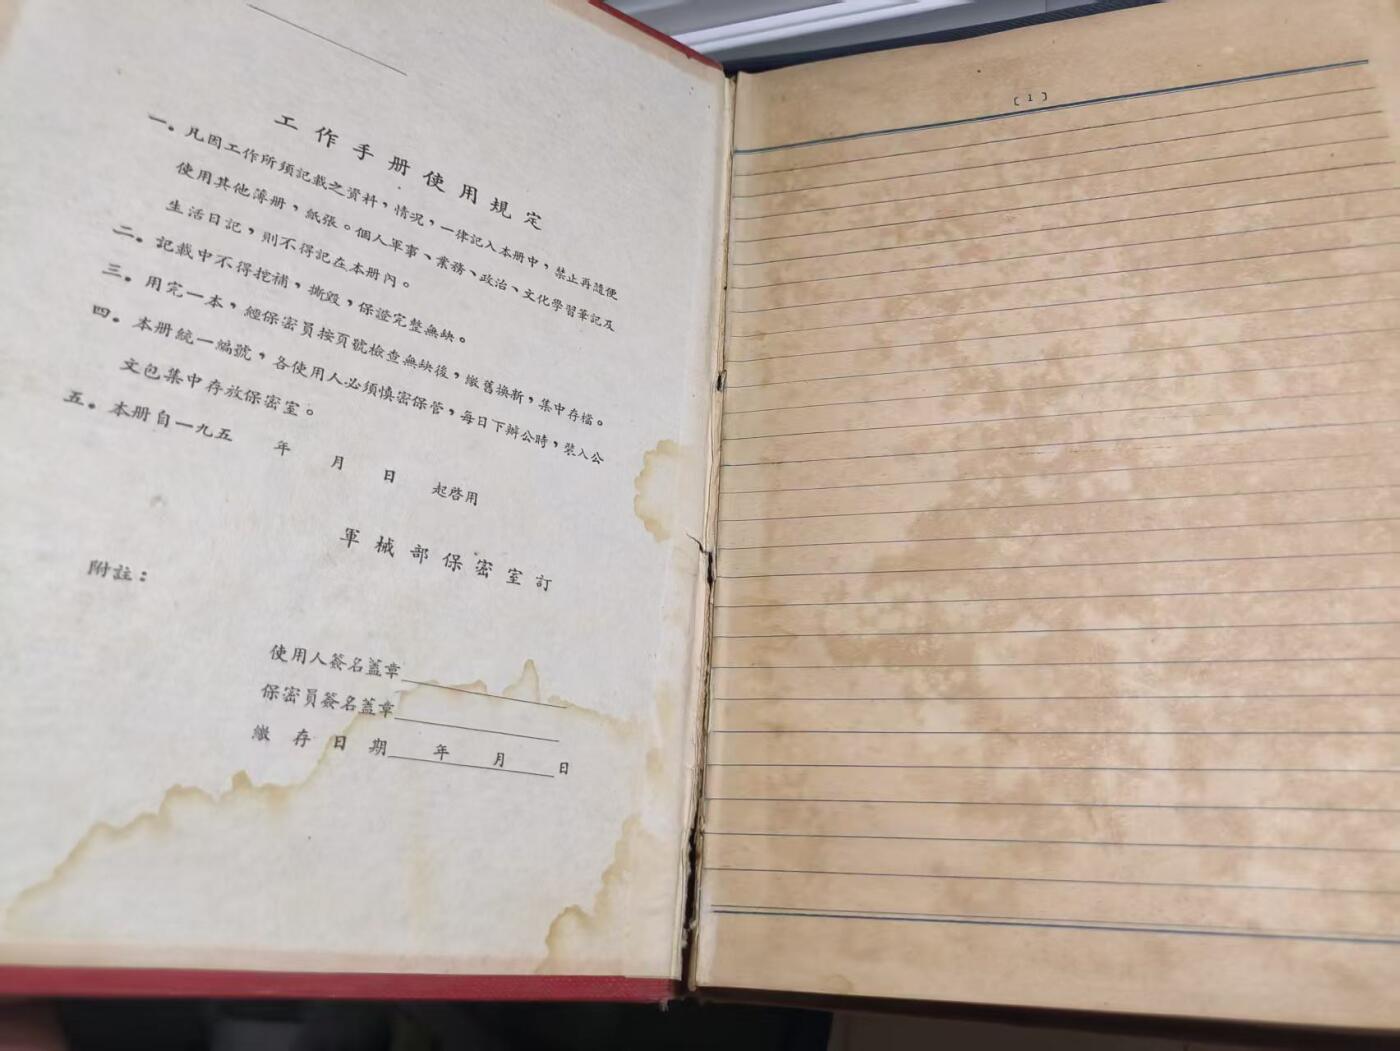 工作手册使用規定
一。凡因工作所須記載之資料，情况，一律記入本册中，禁止再隨便
使用其他薄册，紙張。個人軍事、業務、政治、文化學習筆記及
生活日記，則不得記在本册內。
二。記載中不得挖補，撕毀，保證完整無缺。
三。用完一本，經保密員按頁號檢查無缺後，繳舊換新，集中存檔。
四。本册統一編號，各使用人必須慎密保管，每日下辦公時，裝入公
文包集中存放保密室。
五。本册自一九五　年　月　日　起啓用
軍械部保密室訂
附註：
使用人簽名蓋章
保密員簽名蓋章
繳存日期　年　月　日
〔1〕